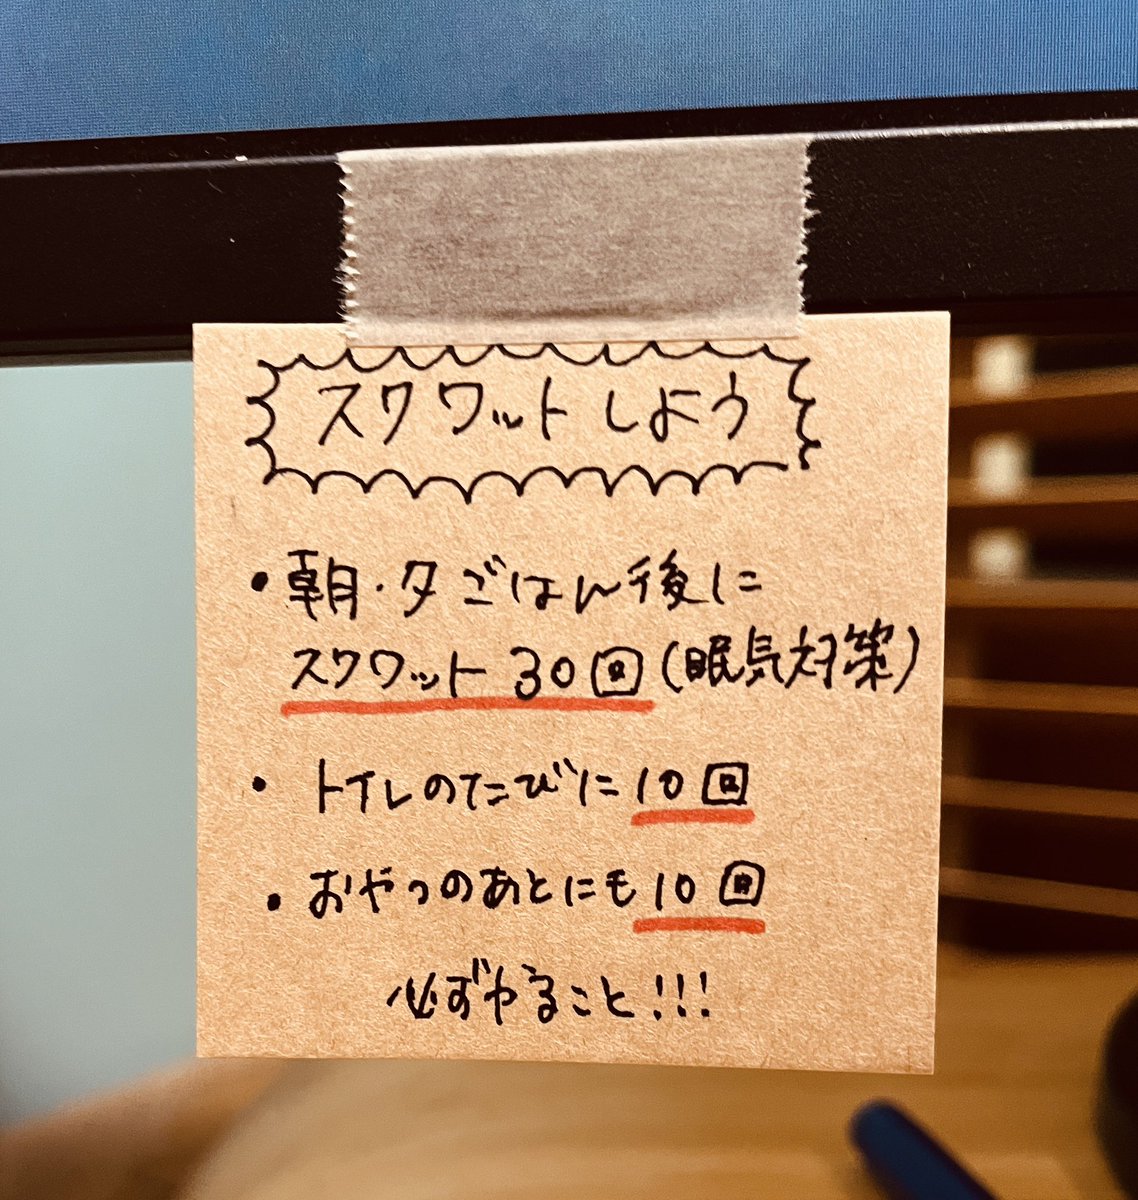 スクワットしよう
・朝・夕ごはん後に
スクワット30回(眠気対策)
・トイレのたびに10回
・おやつのあとにも10回
必ずやること!!!